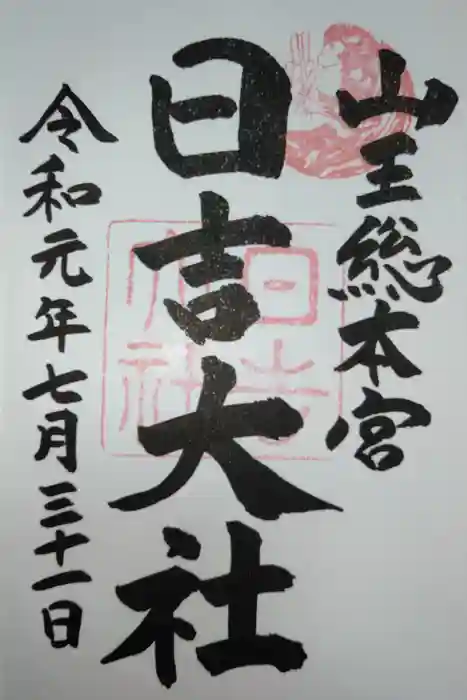 山王総本宮
日吉大社
令和元年七月三十一日
日吉大社